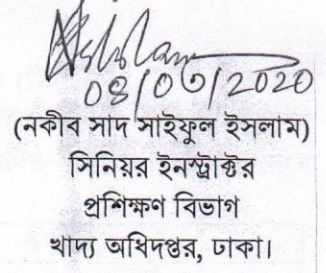 08/03/2020
(নকীব সাদ সাইফুল ইসলাম)
সিনিয়র ইনস্ট্রাক্টর
প্রশিক্ষণ বিভাগ
খাদ্য অধিদপ্তর, ঢাকা।